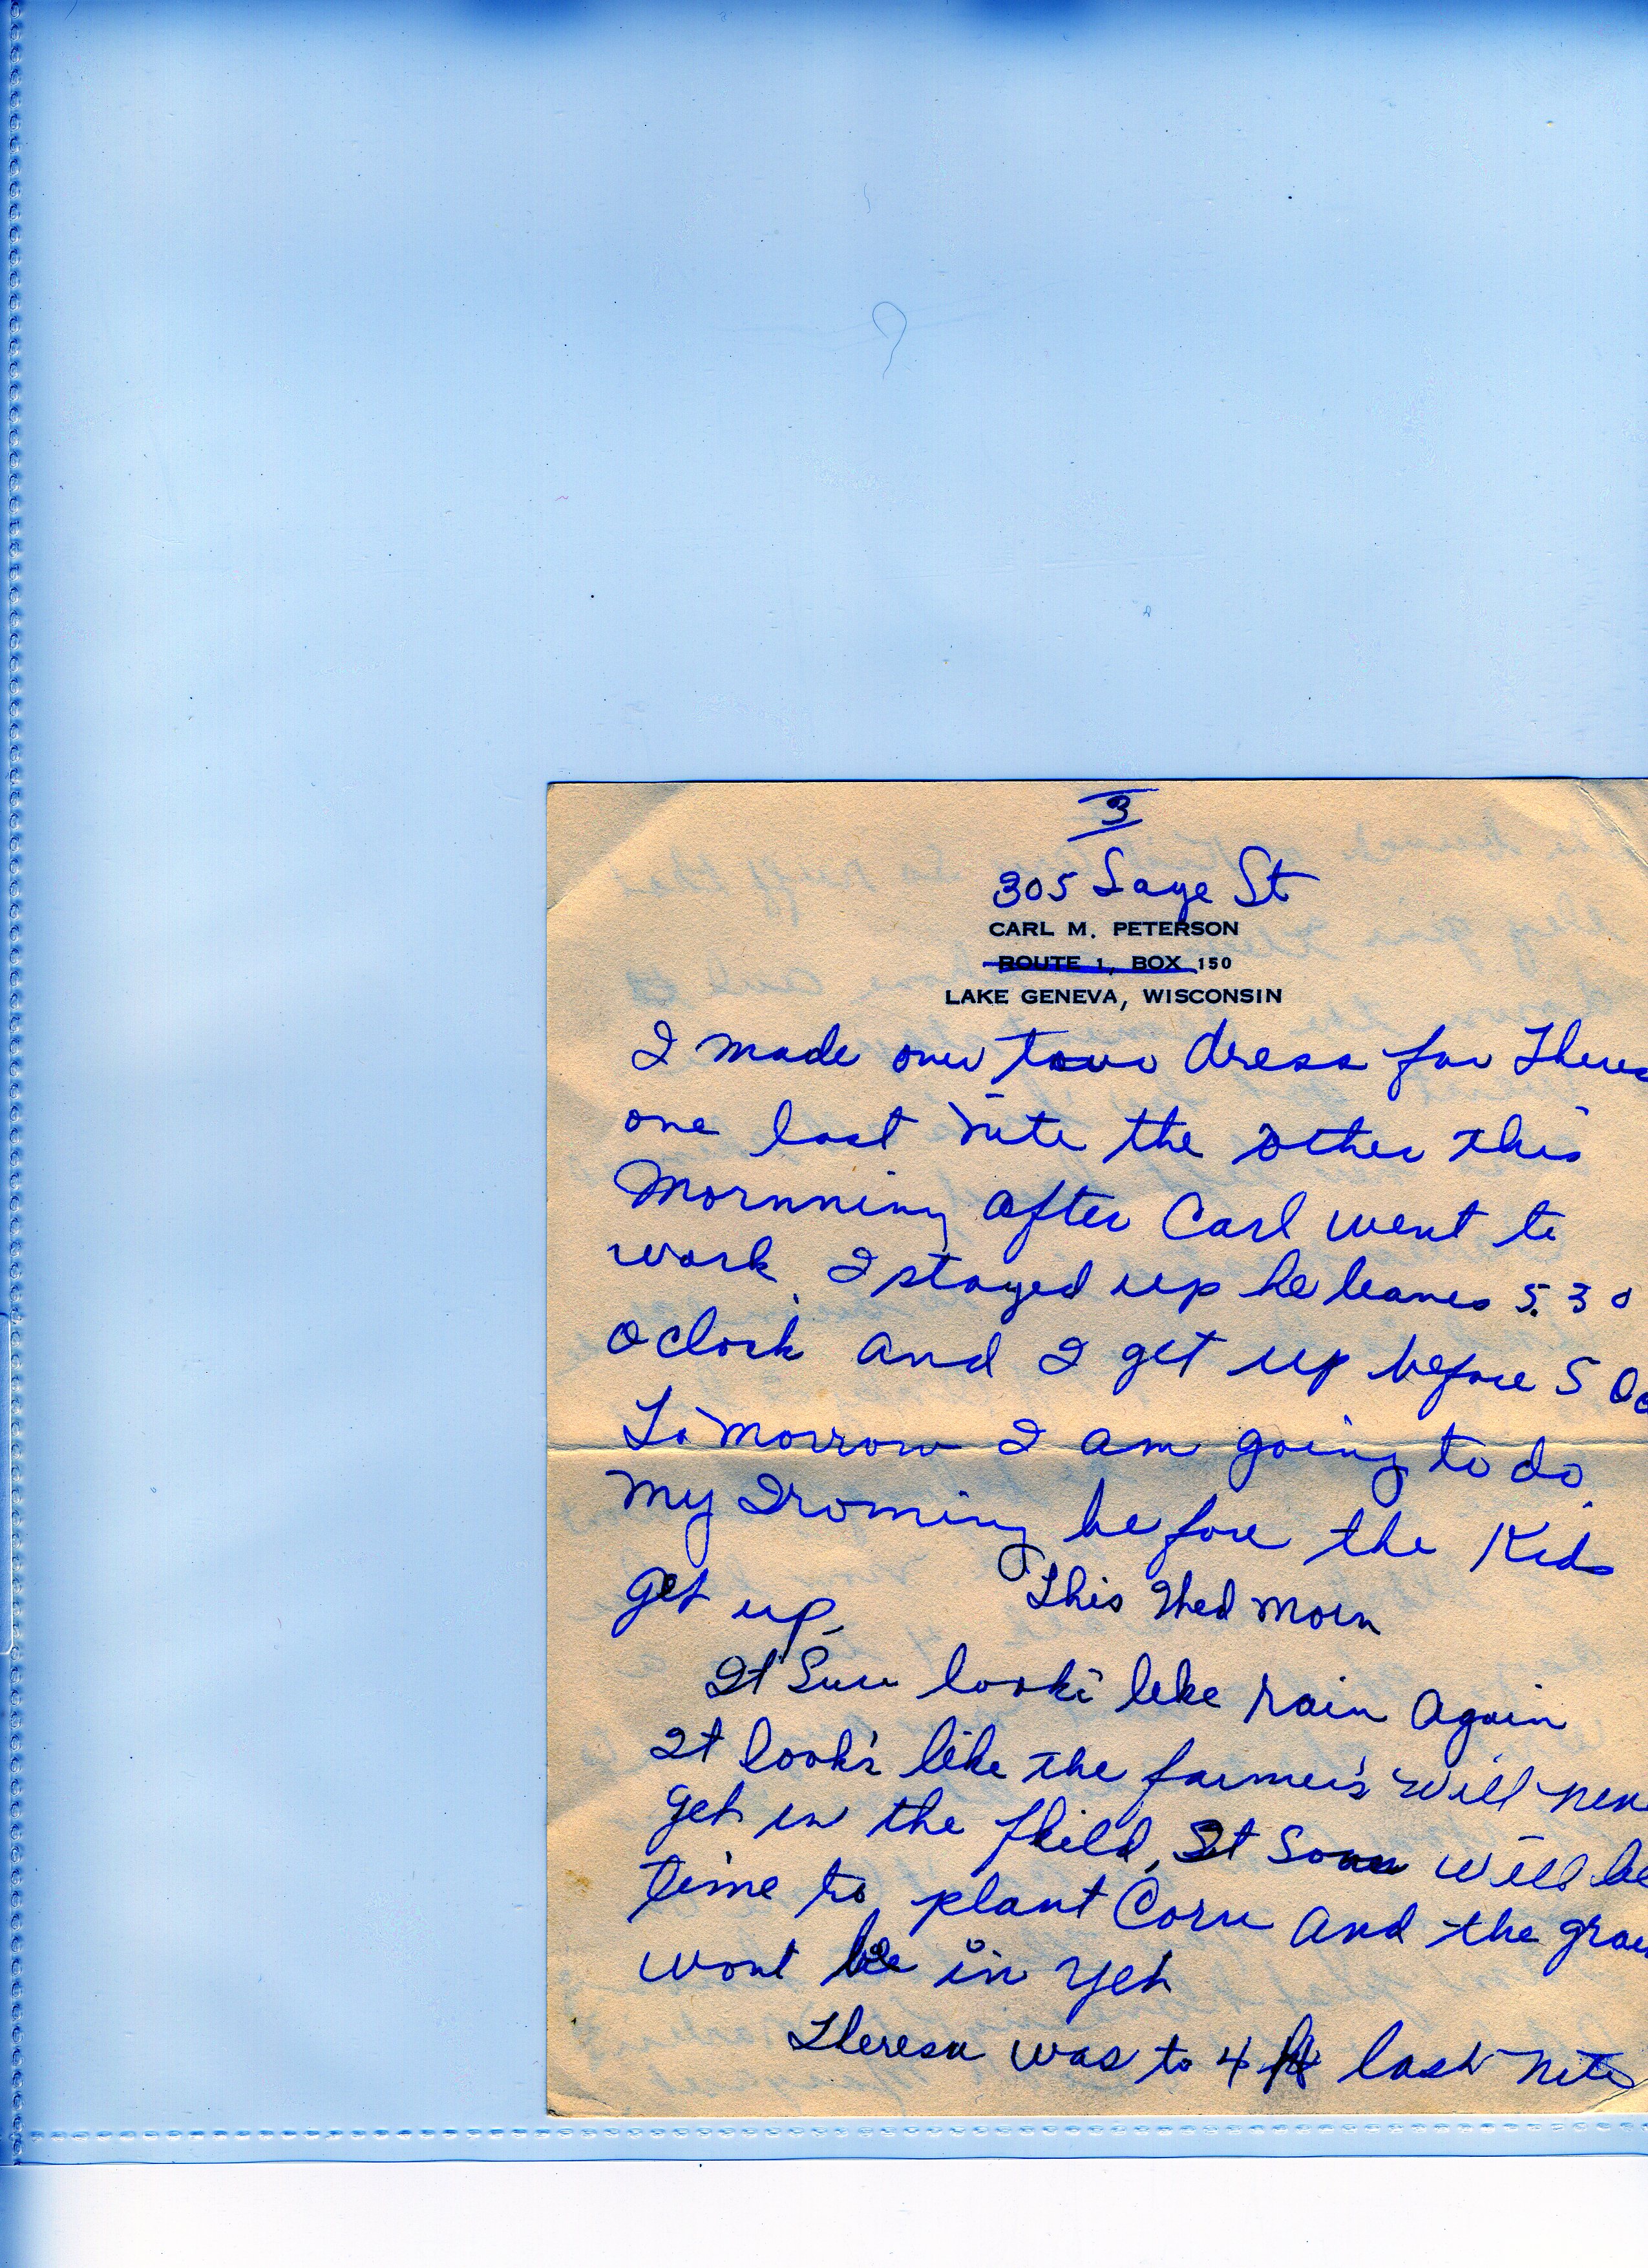 3
305 Sage St
CARL M. PETERSON
ROUTE 1, BOX 150
LAKE GENEVA, WISCONSIN
I made over two dress for Theres
one last nite the other this
Mornning after Carl went to
work. I stayed up he leaves 5.30
Oclock and I get up before 5 Oc
Tomorrow I am going to do
my Ironing before the Kids
get up. This Wed Morn
It Sure look's like rain Again
It look's like the farmer's will nev
get in the field, It Soon will be
time to plant Corn and the grai
wont be in yet
Theresa was to 4 H last nite